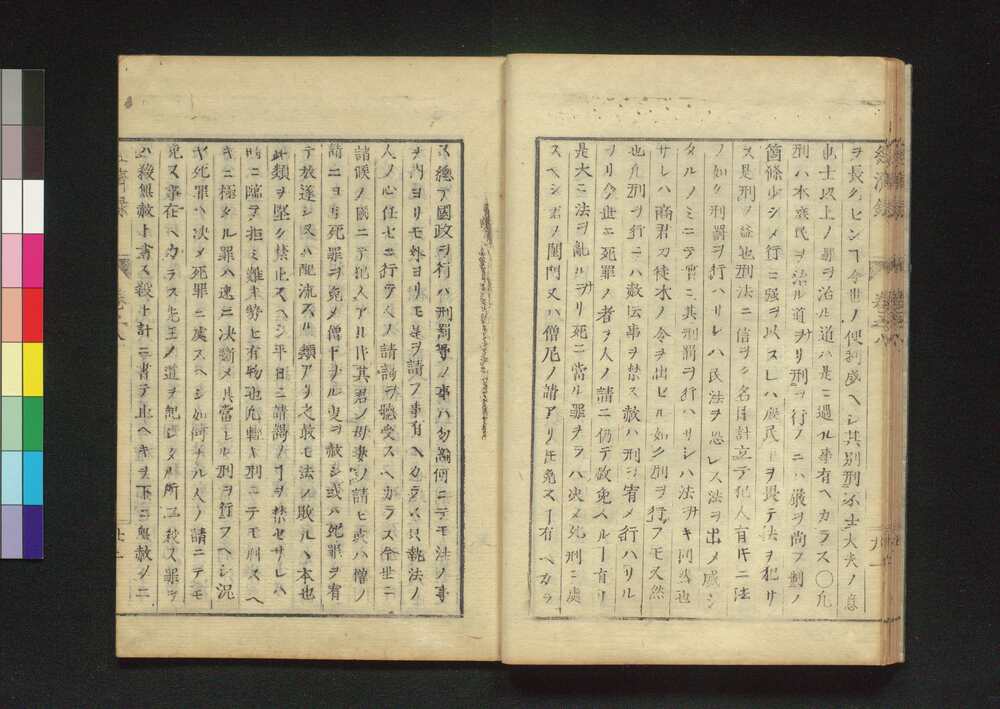 ヲ長クセンコ今世ノ便利成ヘシ其別刑不士大夫ノ意
也士以上ノ罪ヲ治ル道ハ是ニ過ル事有ヘカラス〇凡
刑ハ本衰民ヲ治ル道ナリ刑ヲ行ノニハ厳ヲ尚フ制ノ
箇條少シメ行ニ强ヲ以スレハ庶民上ヲ畏テ法ヲ犯サ
ス是刑ノ益也刑法ニ信ヲク名目計立テ犯人有トキニ法
ノ如ク刑罰ヲ行ハサレハ民法ヲ恐レス法ヲ出メ威シ
タルノミニテ實ニ其刑罰ヲ行ハサレハ法ナキ同然也
サレハ商君カ徒木ノ令ヲ出セル如ク刑ヲ行フモ又然
也凡刑ヲ行ニハ数赦事ヲ禁ス赦ハ刑ヲ宥メ行ハサル
ナリ今世ニ死罪ノ者ヲ人ノ請ニ仍テ赦免スルコ有リ
是大ニ法ヲ亂ルナリ死ニ當ル罪ナラハ决メ死刑ニ處
スヘシ君ノ閨門又ハ僧尼ノ請アリ𪜈免スコ有ヘカラ
ス總テ國政ヲ行ハ刑罰等ノ事ハ勿論何ニテモ法ノ事
ヲ内ヨリモ外ヨリモ是ヲ請フ事有ヘカラス只執法ノ
人ノ心任セニ行テ人ノ請謁ヲ聽受スヘカラス今世ニ
諸侯ノ國ニテ犯人アル時其君ノ母妻ノ請ヒ或ハ僧ノ
請ニヨリ死罪ヲ免メ僧トナル叓ヲ赦シ或ハ死罪ヲ宥
テ放逐シ又ハ配流スル類アリ之故モ法ノ敗ルヽ本也
此類ヲ堅ク禁止スヘシ平日ニ請謁ノコヲ禁セサレハ
時ニ臨テ拒ミ難キ勢ヒ有物也凡輕キ刑ニテモ刑スヘ
キニ極タル罪ハ速ニ决斷メ其當レル刑ヲ行フヘシ况
ヤ死罪ヘ决メ死罪ニ處スヘシ如何ナル人ノ請ニテモ
免ス事在ヘカラス先王ノ道ヲ記シタル所ニ殺ス罪ヲ
ハ殺無赦ト書ス殺ト計ニ書テ止ヘキヲ下ニ無赦ノ二